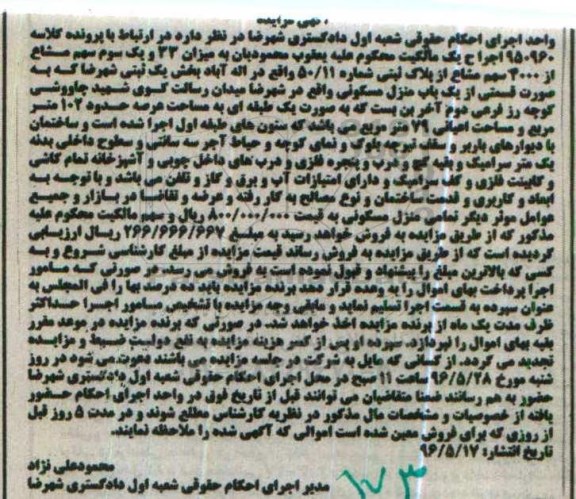 آگهی مزایده
واحد اجرای احکام حقوقی شعبه اول دادگستری شهرضا در نظر دارد در ارتباط با پرونده کلاسه
۹۵۰۹۶۰ اجرا ح یک مالکیت محکوم علیه یعقوب محمودیان به میزان ۳۳ و یک سوم سهم مشاع
از ۴۰۰۰ سهم مشاع از پلاک ثبتی شماره ۵۰/۱۱ واقع در اله آباد بخش یک ثبتی شهرضا که به
صورت قسمتی از یک باب منزل مسکونی واقع در شهرضا میدان رسالت کوی شهید چاووشی
کوچه رز فرعی دوم آخر بن است که به صورت یک طبقه ای به مساحت عرصه حدود ۱۰۲ متر
مربع و مساحت اعیانی ۷۹ متر مربع می باشد که ستون های طبقه اول اجرا شده است و ساختمان
با دیوارهای باربر و سقف تیرچه بلوک و نمای کوچه و حیاط آجر سه سانتی و سطوح داخلی بدنه
یک متر سرامیک و بقیه گچ و درب و پنجره فلزی و درب های داخل چوبی و آشپزخانه تمام کاشی
و کابینت فلزی و کف سرامیک و دارای امتیازات آب و برق و گاز و تلفن می باشد و با توجه به
ابعاد و کاربری و قدمت ساختمان و نوع مصالح به کار رفته و عرضه و تقاضا در بازار و جمیع
عوامل موثر دیگر تمامی منزل مسکونی به قیمت ۸۰۰/۰۰۰/۰۰۰ ریال و سهم مالکیت محکوم علیه
مذکور که از طریق مزایده به فروش خواهد رسید به مبلغ ۲۶۶/۶۶۶/۶۶۷ ریال ارزیابی
گردیده است که از طریق مزایده به فروش رساند قیمت مزایده از مبلغ کارشناسی شروع و به
کسی که بالاترین مبلغ را پیشنهاد و قبول نموده است به فروش می رسد، در صورتی که مامور
اجرا پرداخت بهای اموال را به وعده قرار دهد برنده مزایده باید ده درصد بها را فی المجلس به
عنوان سپرده به قسمت اجرا تسلیم نماید و مابقی وجه مزایده با تشخیص مامور اجرا حداکثر
ظرف مدت یک ماه از برنده مزایده اخذ خواهد شد. در صورتی که برنده مزایده در موعد مقرر
بقیه بهای اموال را نپردازد، سپرده او پس از کسر هزینه مزایده به نفع دولت ضبط و مزایده
تجدید می گردد. از کسانی که مایل به شرکت در جلسه مزایده می باشند دعوت می شود در روز
شنبه مورخ ۹۶/۵/۲۸ ساعت ۱۱ صبح در محل اجرای احکام حقوقی شعبه اول دادگستری شهرضا
حضور به هم رسانند ضمنا متقاضیان می توانند قبل از تاریخ فوق در واحد اجرای احکام حضور
یافته از خصوصیات و مشخصات مال مذکور در نظریه کارشناسی مطلع شوند و در مدت ۵ روز قبل
از روزی که برای فروش معین شده است اموالی که آگهی شده را ملاحظه نمایند.
تاریخ انتشار: ۹۶/۵/۱۷
محمودعلی نژاد
مدیر اجرای احکام حقوقی شعبه اول دادگستری شهرضا